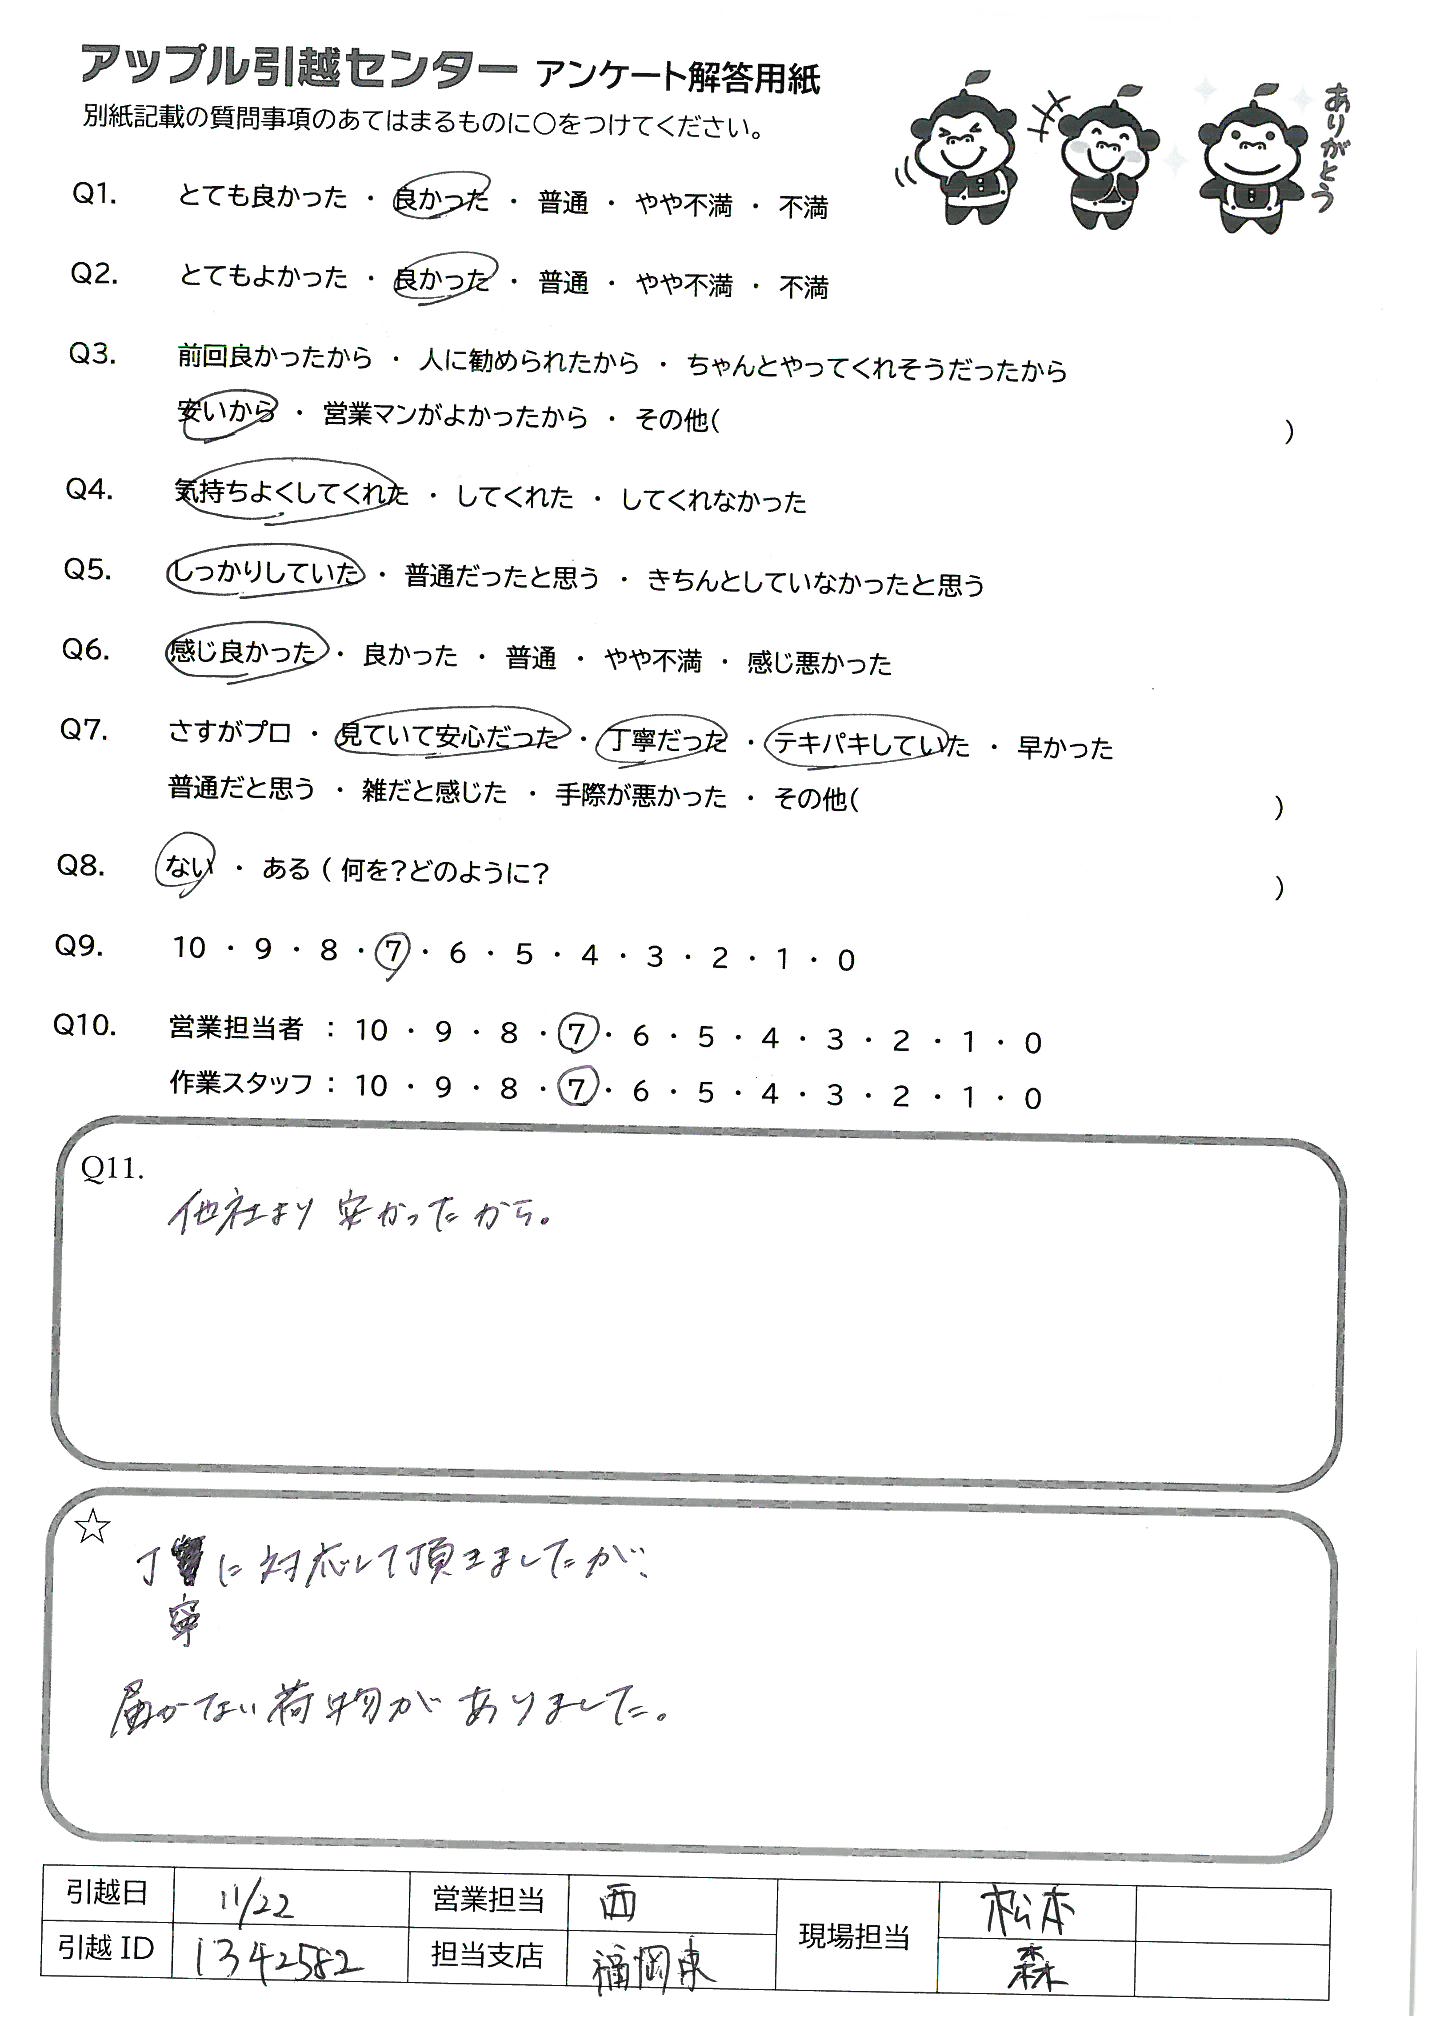 アップル引越センター アンケート解答用紙
別紙記載の質問事項のあてはまるものに○をつけてください。
ありがとう
Q1. とても良かった ・ 良かった ・ 普通 ・ やや不満 ・ 不満
Q2. とてもよかった ・ 良かった ・ 普通 ・ やや不満 ・ 不満
Q3. 前回良かったから ・ 人に勧められたから ・ ちゃんとやってくれそうだったから
安いから ・ 営業マンがよかったから ・ その他( )
Q4. 気持ちよくしてくれた ・ してくれた ・ してくれなかった
Q5. しっかりしていた ・ 普通だったと思う ・ きちんとしていなかったと思う
Q6. 感じ良かった ・ 良かった ・ 普通 ・ やや不満 ・ 感じ悪かった
Q7. さすがプロ ・ 見ていて安心だった ・ 丁寧だった ・ テキパキしていた ・ 早かった
普通だと思う ・ 雑だと感じた ・ 手際が悪かった ・ その他( )
Q8. ない ・ ある ( 何を?どのように? )
Q9. 10 ・ 9 ・ 8 ・ 7 ・ 6 ・ 5 ・ 4 ・ 3 ・ 2 ・ 1 ・ 0
Q10. 営業担当者 : 10 ・ 9 ・ 8 ・ 7 ・ 6 ・ 5 ・ 4 ・ 3 ・ 2 ・ 1 ・ 0
作業スタッフ : 10 ・ 9 ・ 8 ・ 7 ・ 6 ・ 5 ・ 4 ・ 3 ・ 2 ・ 1 ・ 0
Q11.
他社より安かったから。
☆
丁寧に対応して頂きましたが、
届かない荷物がありました。
引越日 11/22 営業担当 西 現場担当 松本
引越ID 1342582 担当支店 福岡東 森